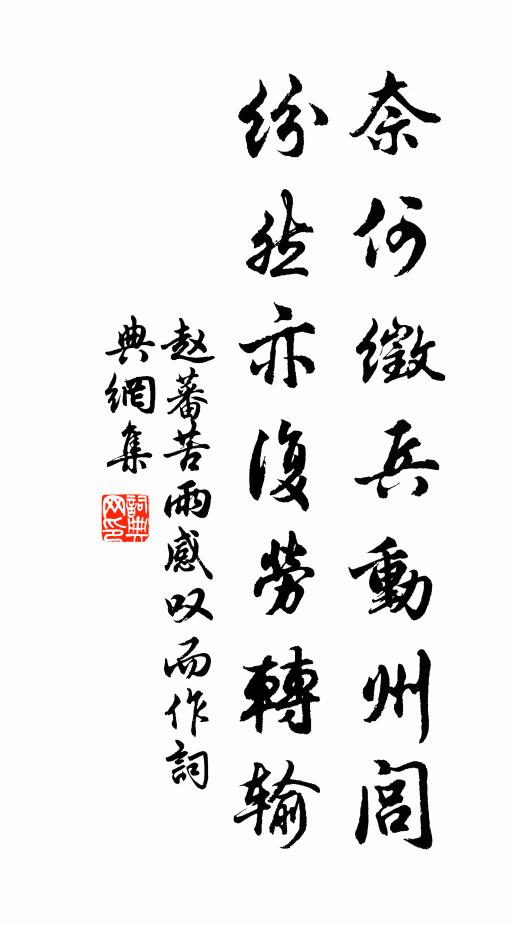 奈何徵兵動州閭
紛然亦復勞轉输
赵蕃苦雨感叹而作詞
典網集
詞典網印